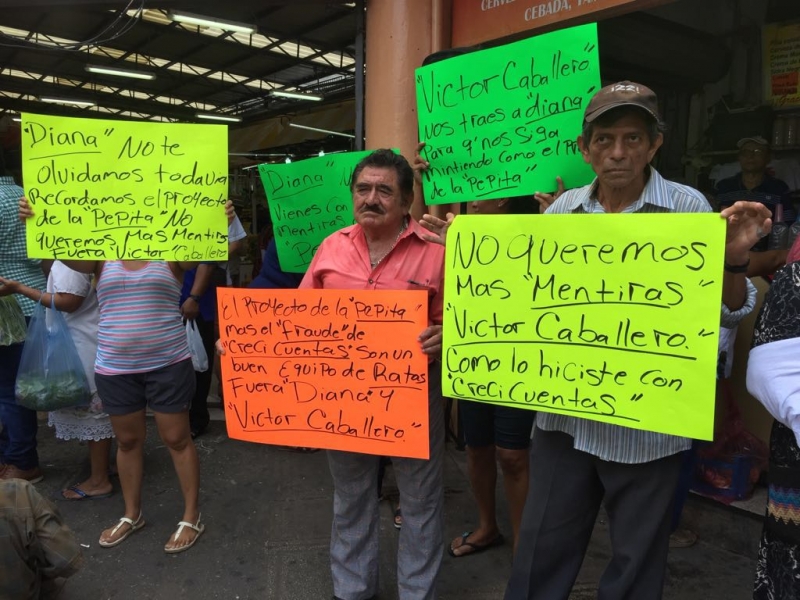 CERVEZ
CEBADA, TA
"Diana" No te
olvidamos todavia
Recordamos el proyecto
de la "PePita" No
queremos Mas Mentiras
Fuera "Victor" Caballero
"Diana"
Vienes Con
mentiras
"Victor Caballero"
nos traes a "diana"
Para q' nos siga
mintiendo como el P
de la "PePita"
El Proyecto de la "PePita"
mas el "fraude" de
"Creci Cuentas" son un
buen EquiPo de Ratas
Fuera "Diana y
"Victor Caballero."
1221
No queremos
Mas "Mentiras"
"Victor Caballero."
Como lo hiciste con
"Creci Cuentas"